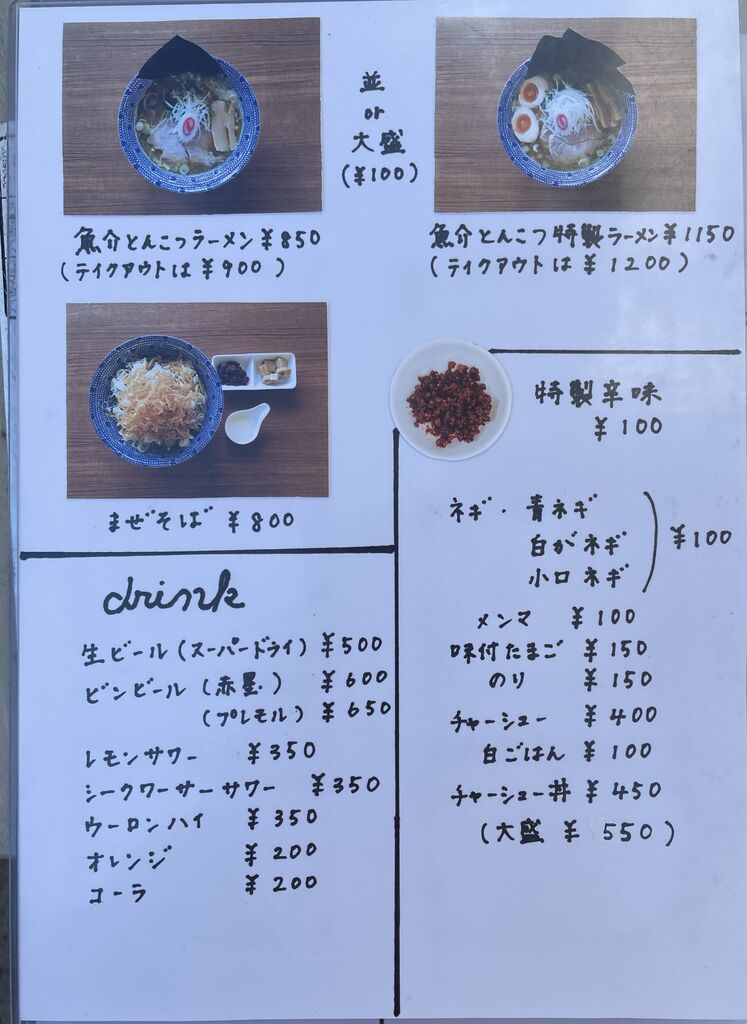 並
or
大盛
(¥100)
魚介とんこつラーメン¥850
(テイクアウトは¥900)
魚介とんこつ特製ラーメン¥1150
(テイクアウトは¥1200)
まぜそば ¥800
特製辛味
¥100
ネギ・青ネギ
白がネギ
小口ネギ
¥100
メンマ ¥100
味付たまご ¥150
のり ¥150
チャーシュー ¥400
白ごはん ¥100
チャーシュー丼 ¥450
(大盛 ¥550)
drink
生ビール(スーパードライ) ¥500
ビンビール(赤星) ¥600
(プレモル) ¥650
レモンサワー ¥350
シークワーサーサワー ¥350
ウーロンハイ ¥350
オレンジ ¥200
コーラ ¥200